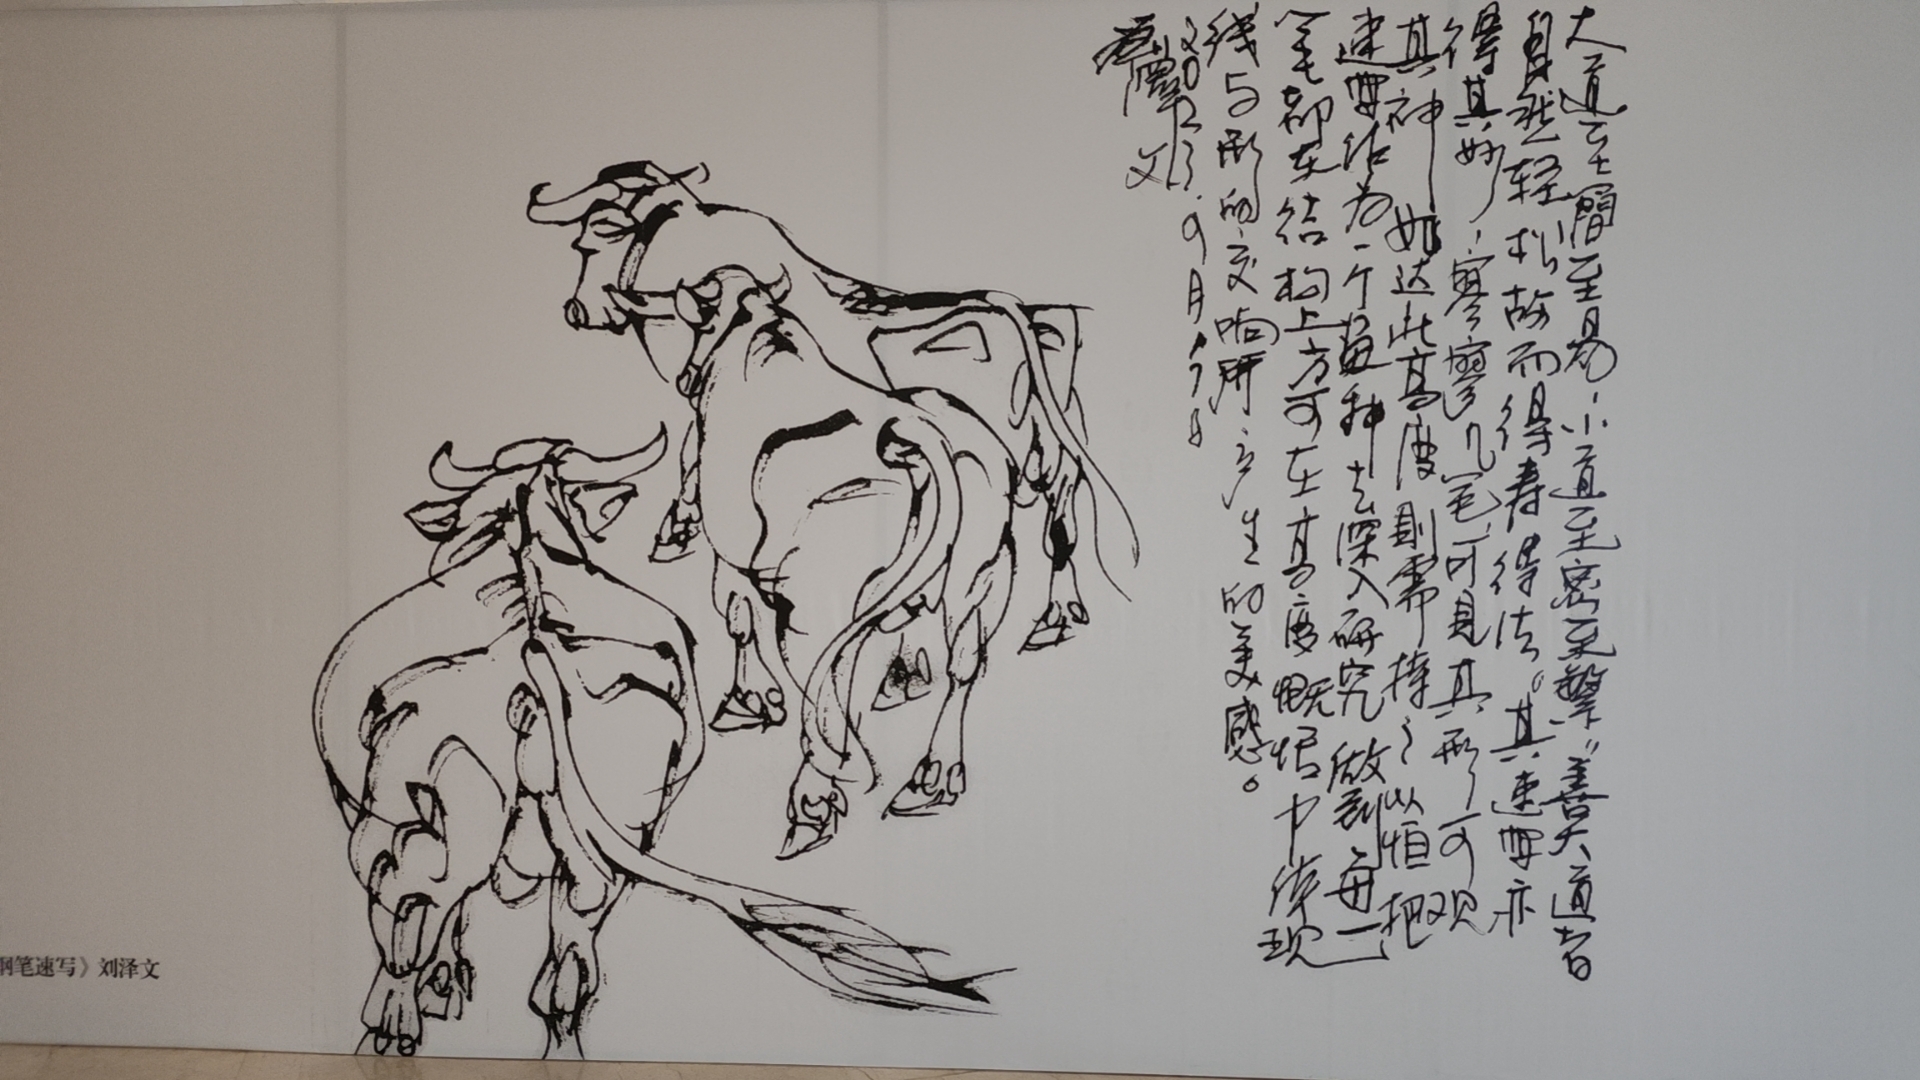 大道至簡至易,小道至密至繁"善大道者
自然轻松故而得寿得法。其速写亦
得其妙,寥寥几笔可见其形,可观
其神 如达此高度则需持之以恒把
速写作为一个画种去深入研究做到每一
笔都在结构上方可在高度概括中体现
线与形的交响所产生的美感。
9月
文
笔速写》刘泽文